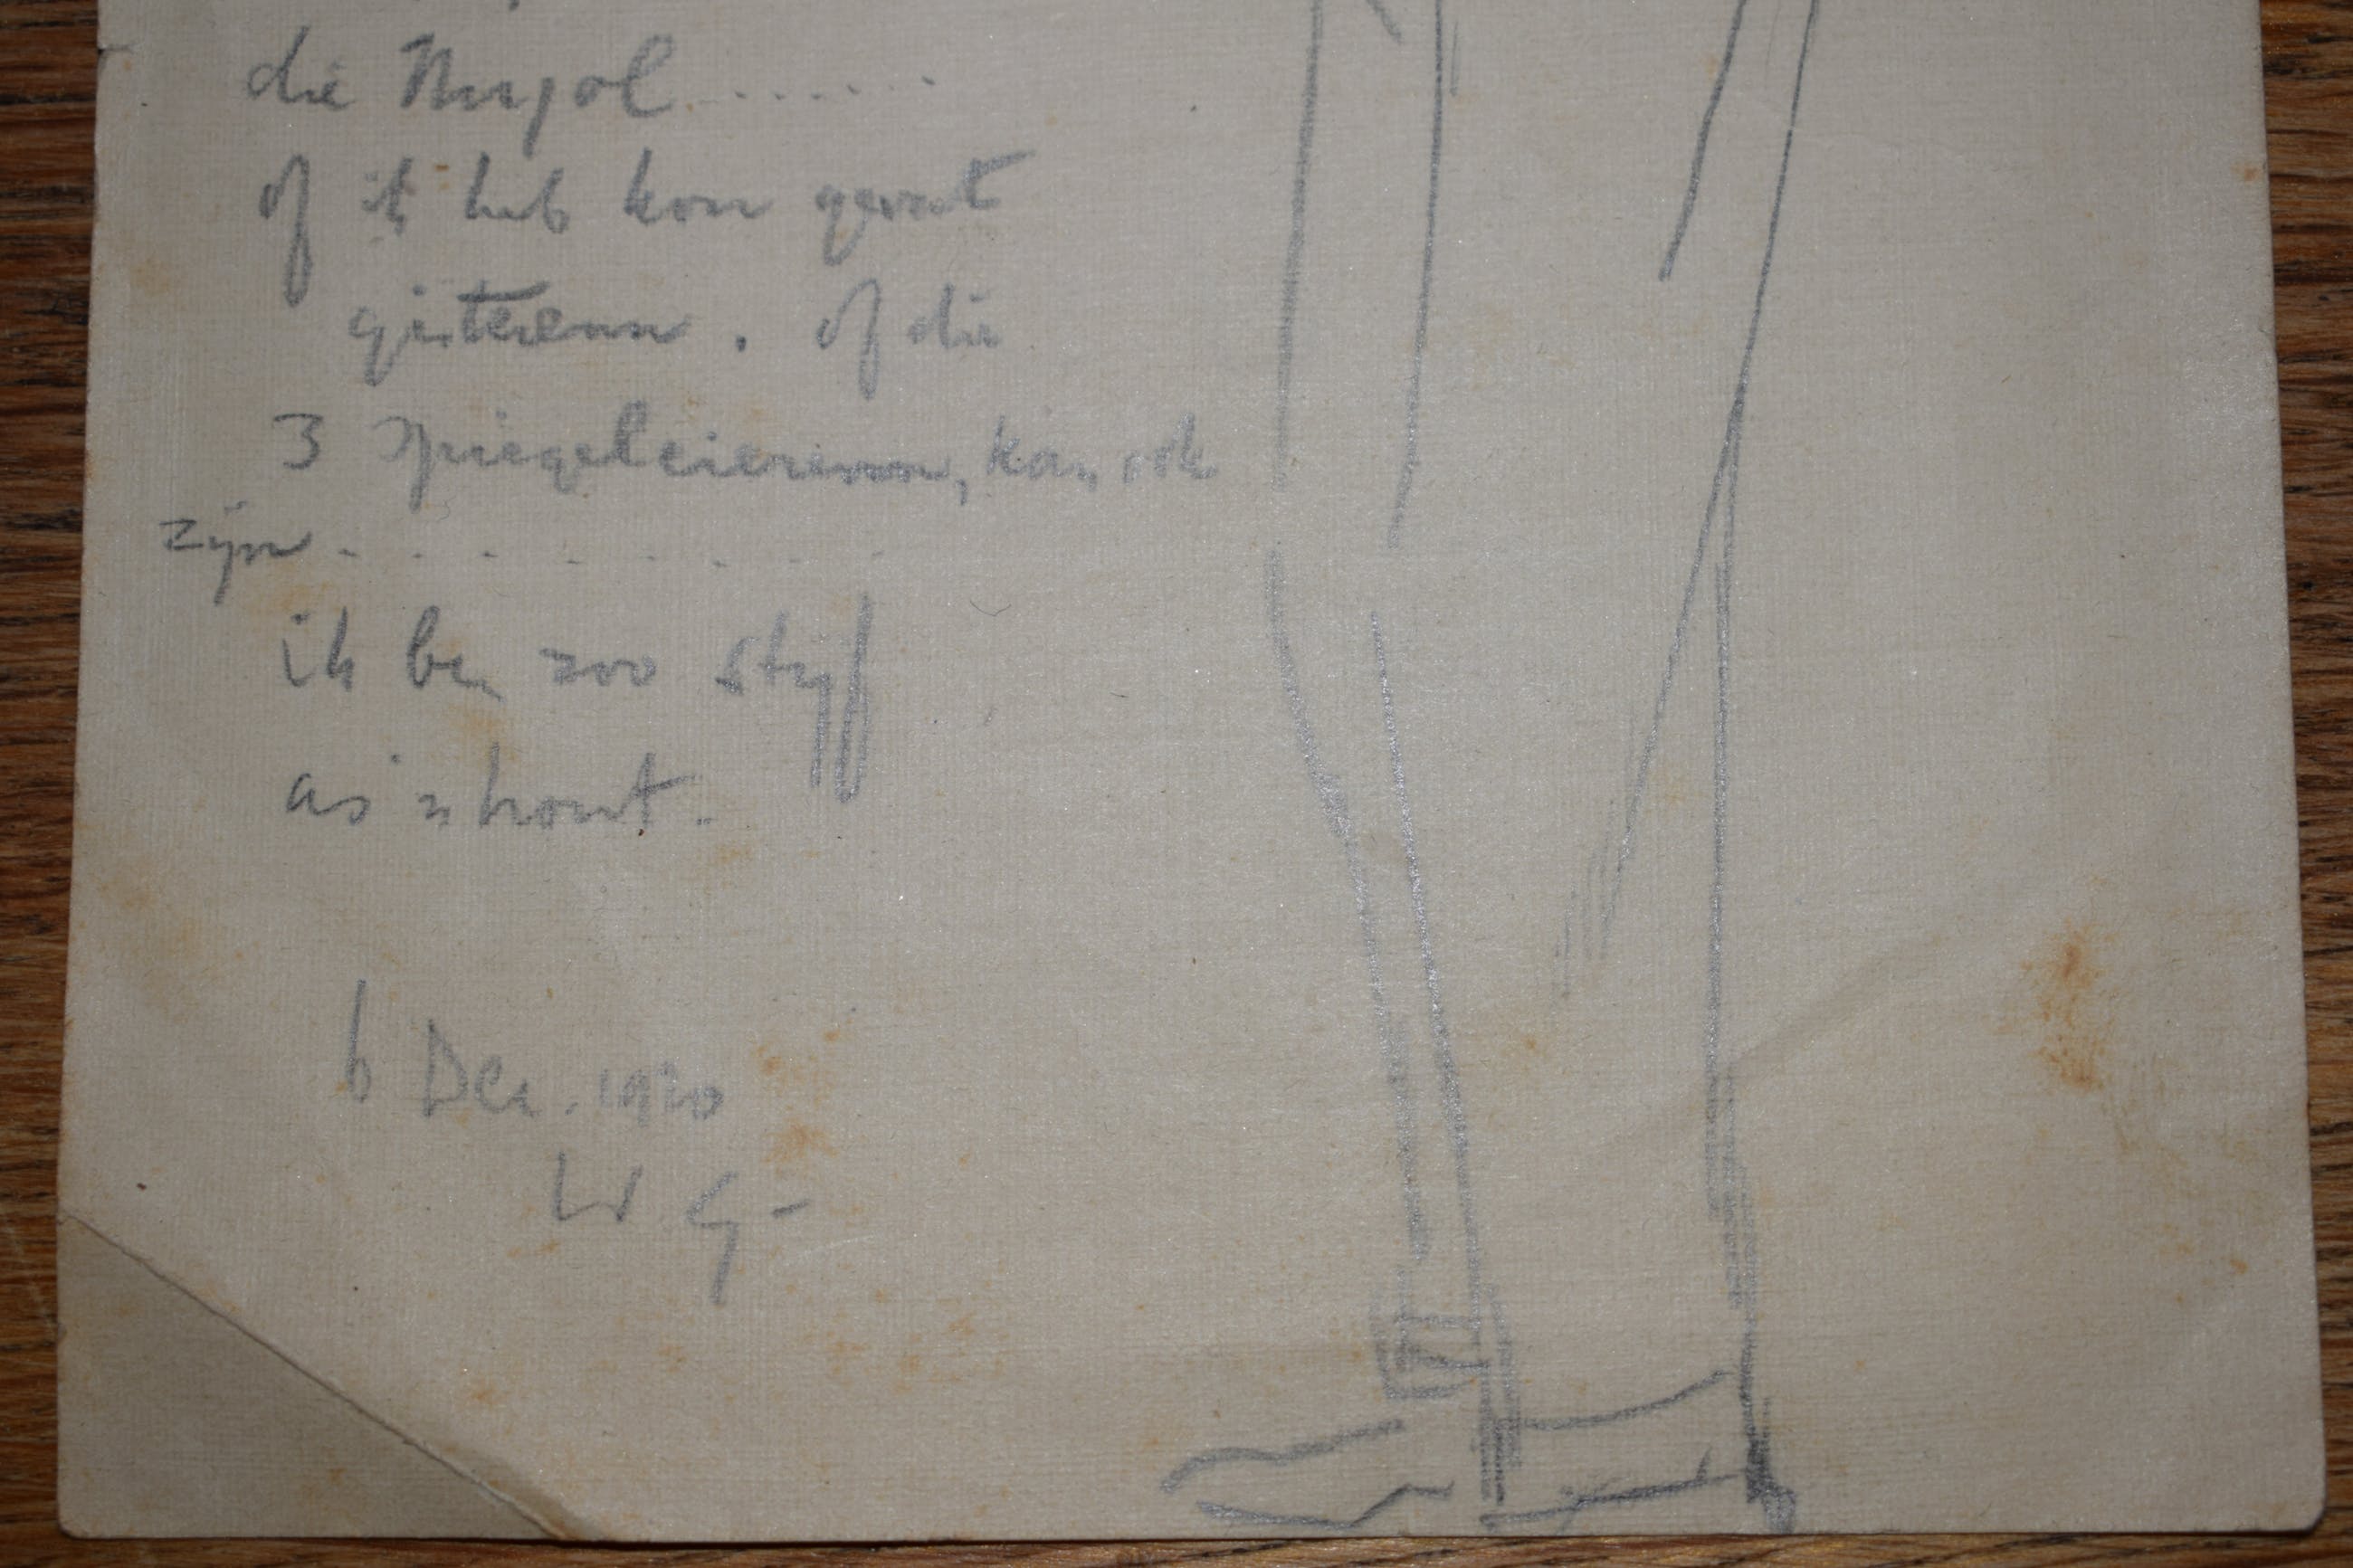 die Nujol . . . . . .
of ik heb kou gevat
gisterenn. of die
3 Spiegeleierenn, kan ook
zijn . . . . . . . .
ik ben zoo stijf
as 'n hout.
6 Dec. 1920
W G-